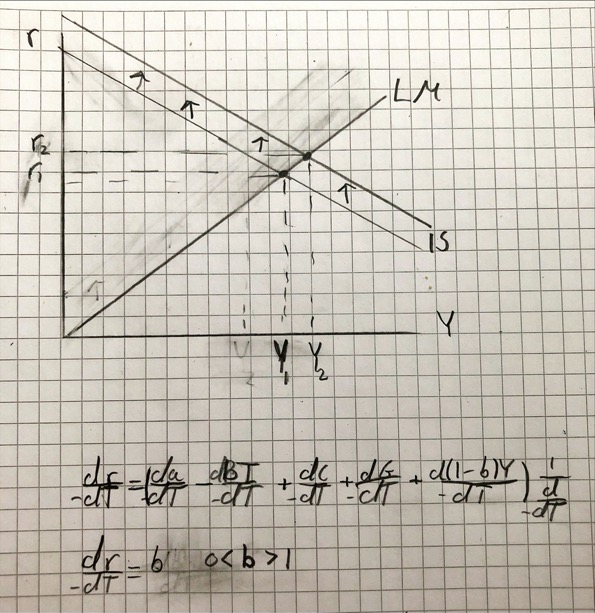 r
LM
r₂
r₁
IS
Y
Y₁ Y₂
dr/-dT = (da/-dT - dBT/-dT + dC/-dT + dG/-dT + d(1-b)Y/-dT) 1/(d/-dT)
dr/-dT = b 0<b>1